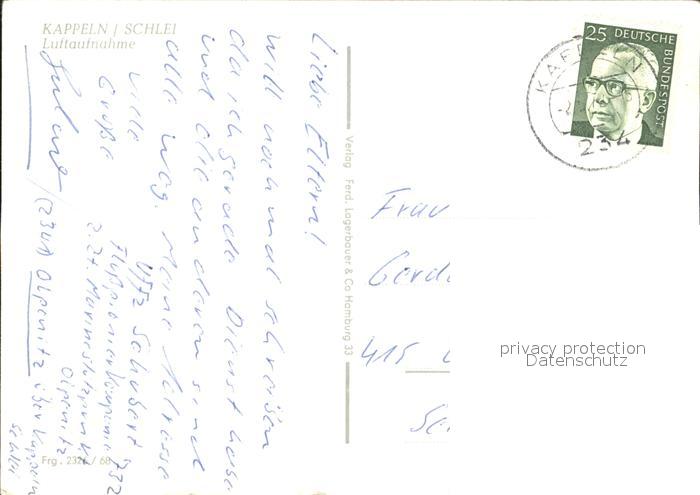 KAPPELN / SCHLEI
Luftaufnahme
Liebe Eltern!
will noch mal schreiben
da ich gerade Dienst habe
und die anderen sind
alle weg. Meine Adresse
viele
Grüße
Uffz Schubert
Flußpionierkompanie 732
z. Zt. Marinestützpunkt
Olpenitz
(2341) Olpenitz über Kappeln
Schlei
Frg. 2321 / 68
Verlag Ferd. Lagerbauer & Co Hamburg 33
25 DEUTSCHE
BUNDESPOST
KAPPELN
234
Frau
Gerd
415
privacy protection
Datenschutz